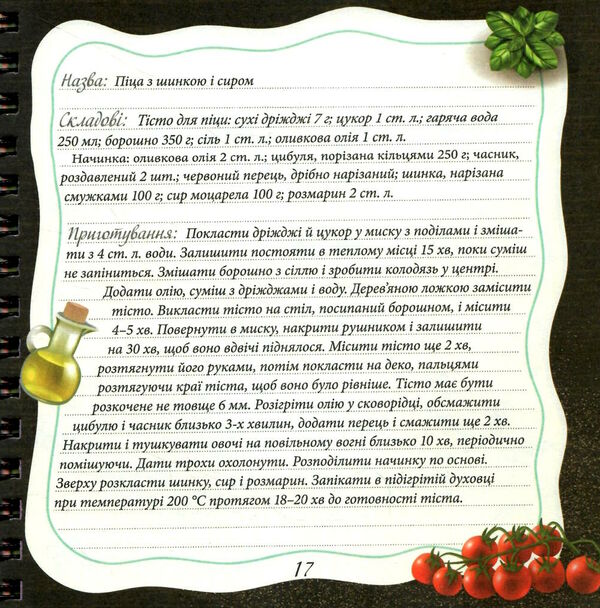 Назва: Піца з шинкою і сиром
Складові: Тісто для піци: сухі дріжджі 7 г; цукор 1 ст. л.; гаряча вода
250 мл; борошно 350 г; сіль 1 ст. л.; оливкова олія 1 ст. л.
Начинка: оливкова олія 2 ст. л.; цибуля, порізана кільцями 250 г; часник,
роздавлений 2 шт.; червоний перець, дрібно нарізаний; шинка, нарізана
смужками 100 г; сир моцарела 100 г; розмарин 2 ст. л.
Приготування: Покласти дріжджі й цукор у миску з поділами і зміша-
ти з 4 ст. л. води. Залишити постояти в теплому місці 15 хв, поки суміш
не запіниться. Змішати борошно з сіллю і зробити колодязь у центрі.
Додати олію, суміш з дріжджами і воду. Дерев’яною ложкою замісити
тісто. Викласти тісто на стіл, посипаний борошном, і місити
4–5 хв. Повернути в миску, накрити рушником і залишити
на 30 хв, щоб воно вдвічі піднялося. Місити тісто ще 2 хв,
розтягнути його руками, потім покласти на деко, пальцями
розтягуючи краї тіста, щоб воно було рівніше. Тісто має бути
розкочене не товще 6 мм. Розігріти олію у сковорідці, обсмажити
цибулю і часник близько 3-х хвилин, додати перець і смажити ще 2 хв.
Накрити і тушкувати овочі на повільному вогні близько 10 хв, періодично
помішуючи. Дати трохи охолонути. Розподілити начинку по основі.
Зверху розкласти шинку, сир і розмарин. Запікати в підігрітій духовці
при температурі 200 °С протягом 18–20 хв до готовності тіста.
17